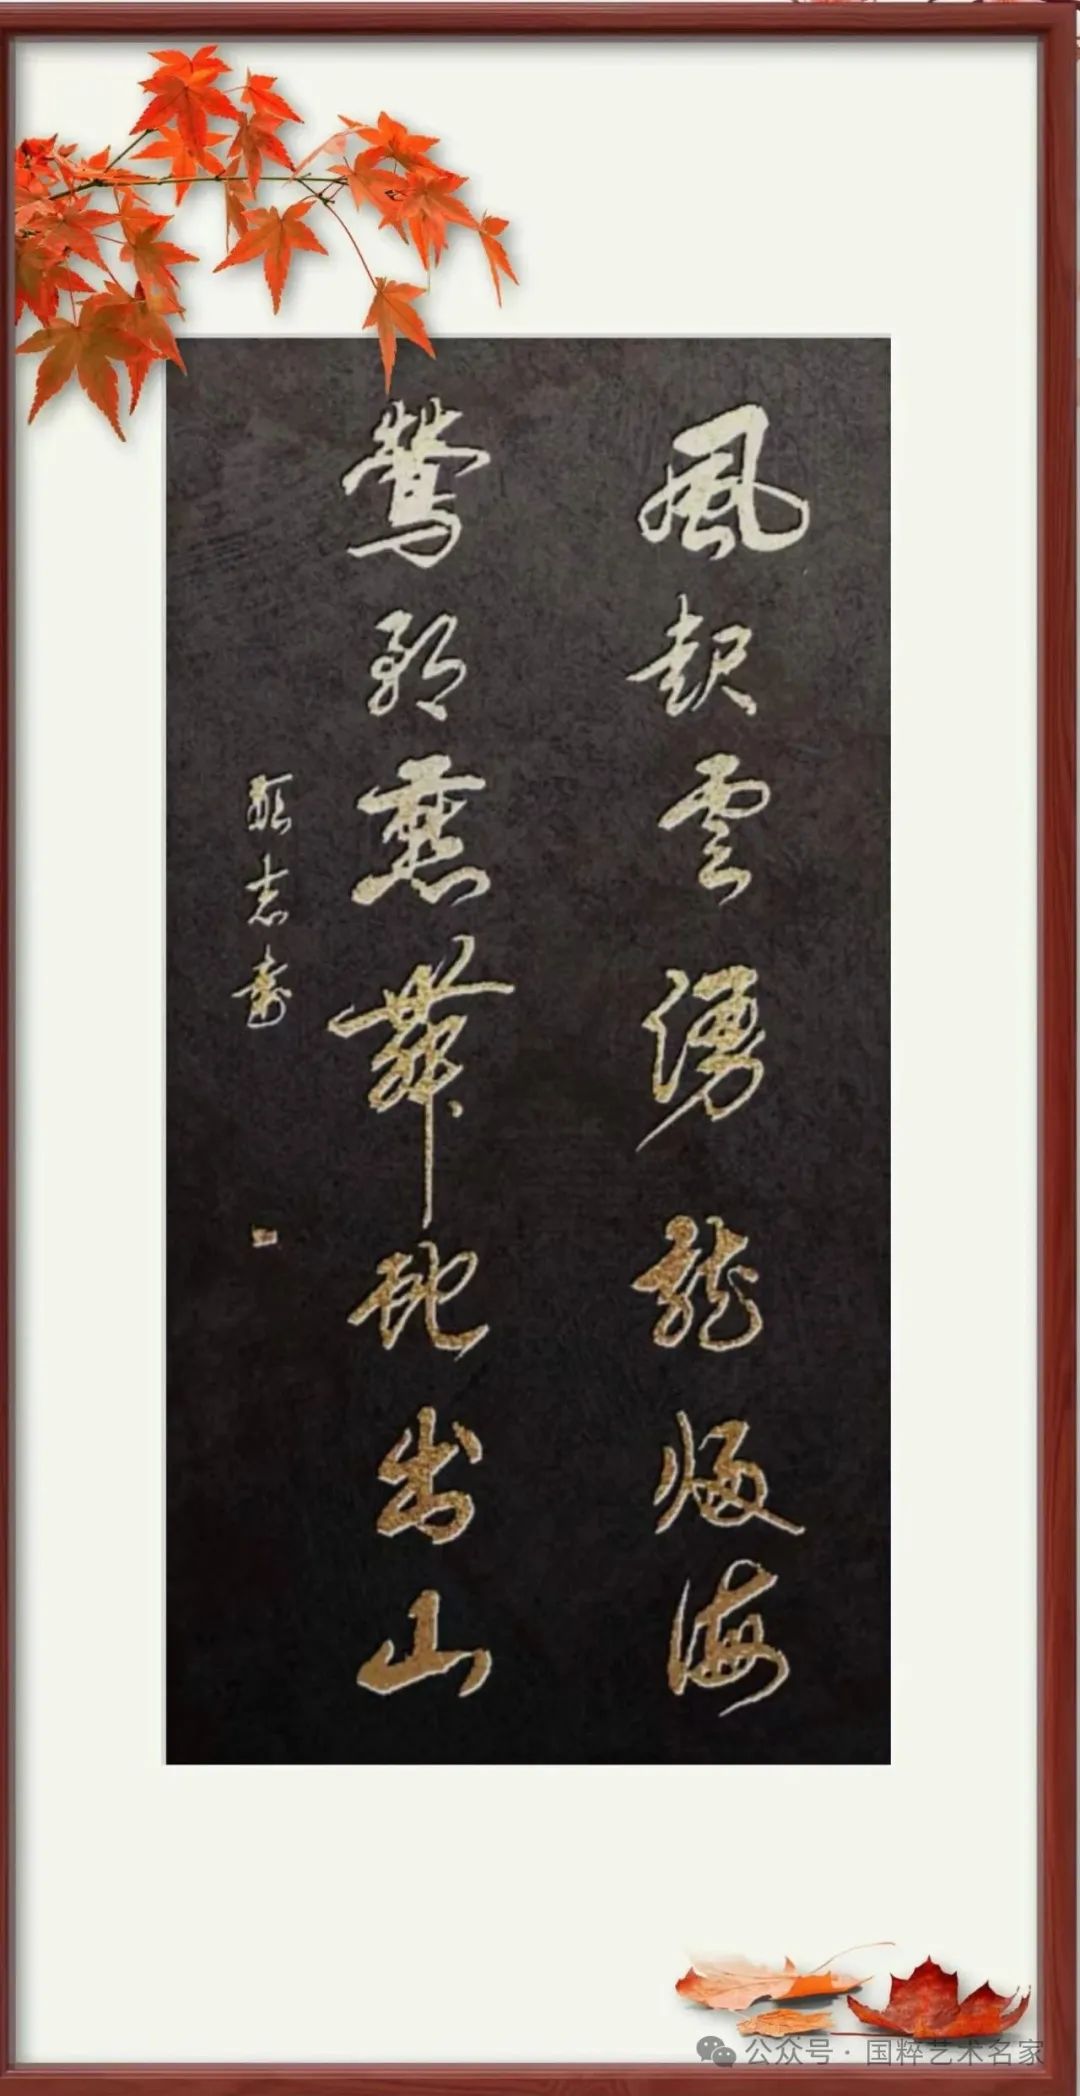 風起雲湧龍歸海
鶯歌燕舞出山
志寿
公众号·国粹艺术名家